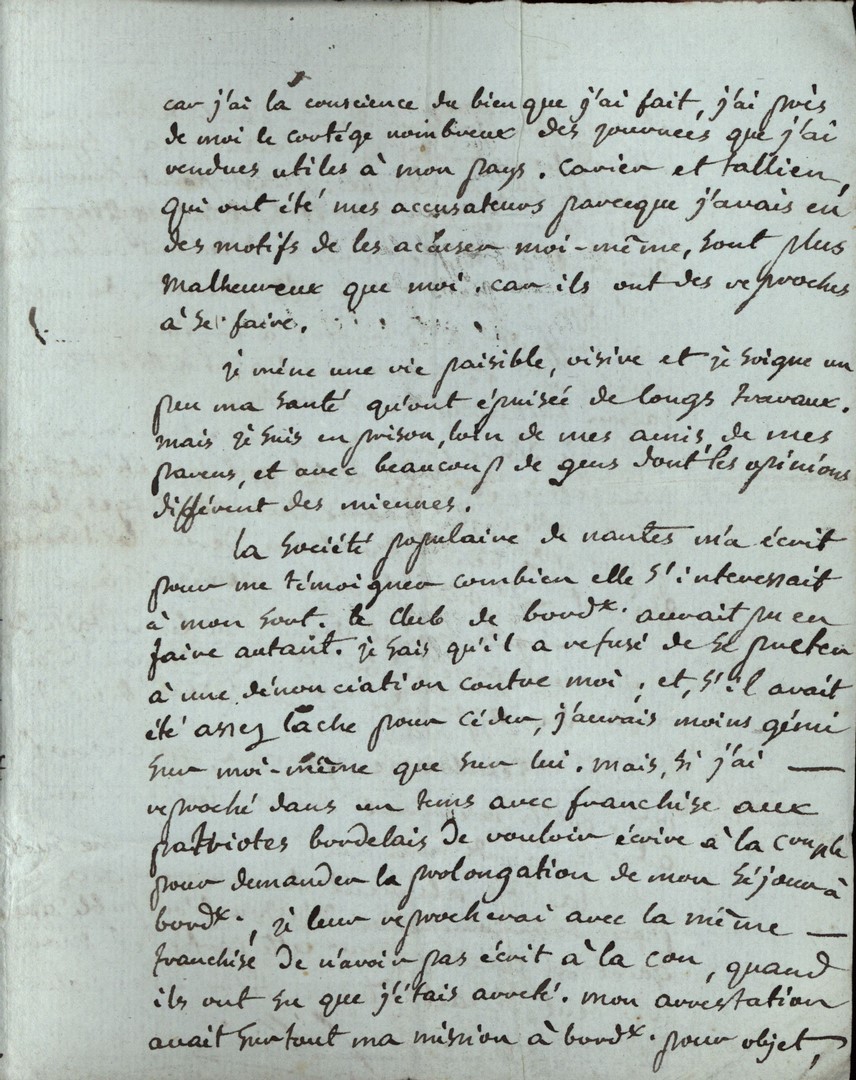 car j'ai la conscience du bien que j'ai fait, j'ai près
de moi le cortége nombreux des journées que j'ai
rendues utiles à mon pays. carier et tallien,
qui ont été mes accusateurs parceque j'avais eu
des motifs de les accuser moi-même, sont plus
malheureux que moi. car ils ont des reproches
à se faire.
je méne une vie paisible, oisive et je soigne un
peu ma santé qu'ont épuisée de longs travaux.
mais je suis en prison, loin de mes amis, de mes
parens, et avec beaucoup de gens dont les opinions
différent des miennes.
la société populaire de nantes m'a écrit
pour me témoigner combien elle s'interessait
à mon sort. le club de bordx. aurait pu en
faire autant. je sais qu'il a refusé de se preter
à une dénonciation contre moi; et, s'il avait
été assez lache pour céder, j'aurais moins gémi
sur moi-même que sur lui. mais, si j'ai —
reproché dans un tems avec franchise aux
patriotes bordelais de vouloir écrire à la
pour demander la prolongation de mon séjour à
bordx., je leur reprocherai avec la même —
franchise de n'avoir pas écrit à la con, quand
ils ont su que j'étais arreté. mon arrestation
avait surtout ma mission à bordx. pour objet,